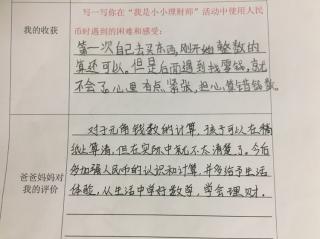 写一写你在“我是小小理财师”活动中使用人民
币时遇到的困难和感受:
我的收获
第一次自己去买东西,刚开始整数的
算还可以,但是后面遇到找零钱,就
不会了,心里有点紧张,担心算错钱数。
对于元角钱数的计算,孩子可以在稿
纸上算清,但在实际中就不太清楚了。今后
多加强人民币的认识和计算,并多给予生活
体验,从生活中学好数学,学会理财.
爸爸妈妈对
我的评价